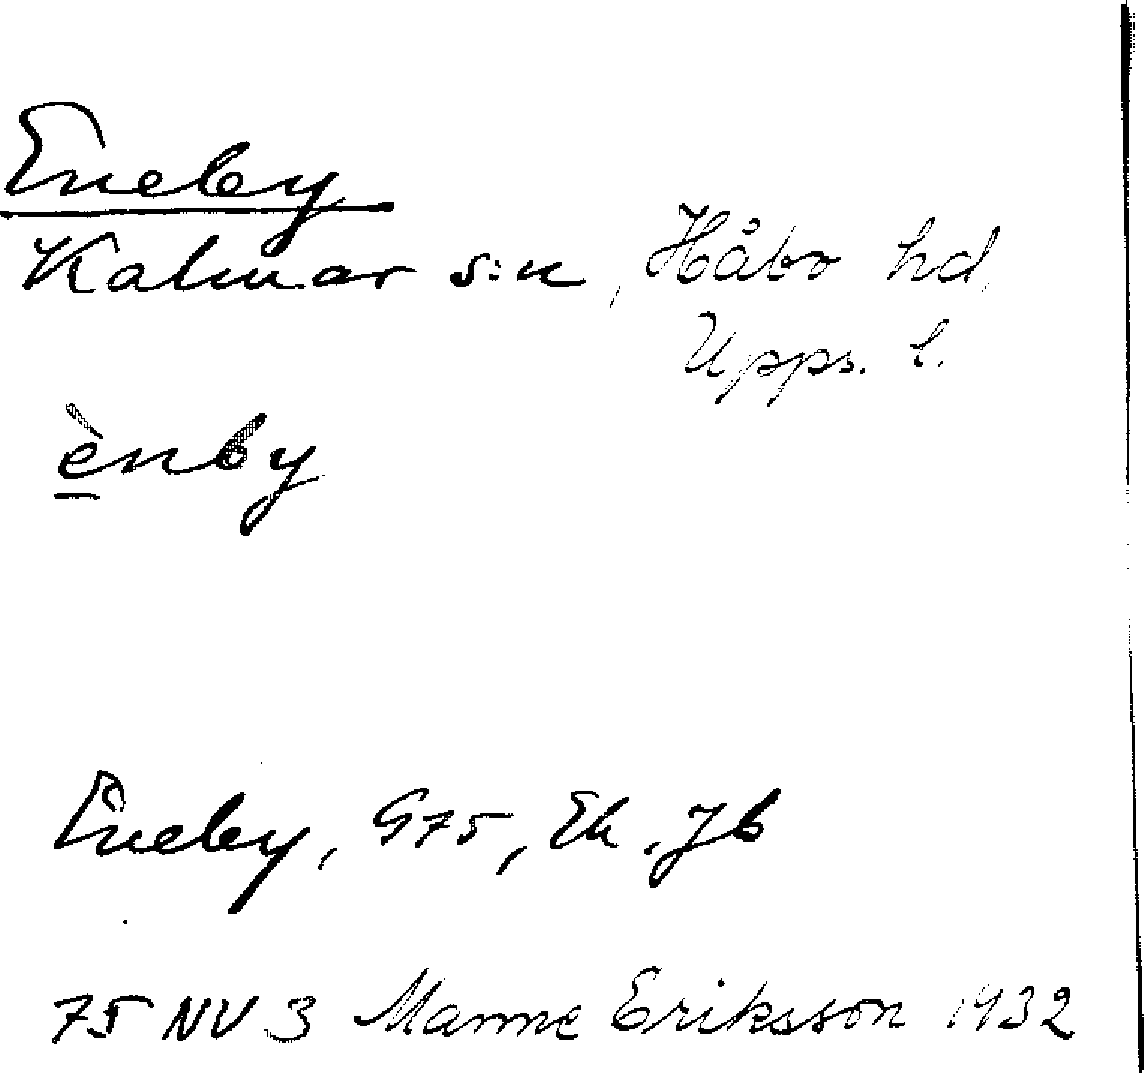 Eneby
Kalmar s:n, Håbo hd,
Upps. l.
ènby
Eneby, G75, Ek. Jb
75 NV 3 Manne Eriksson 1932